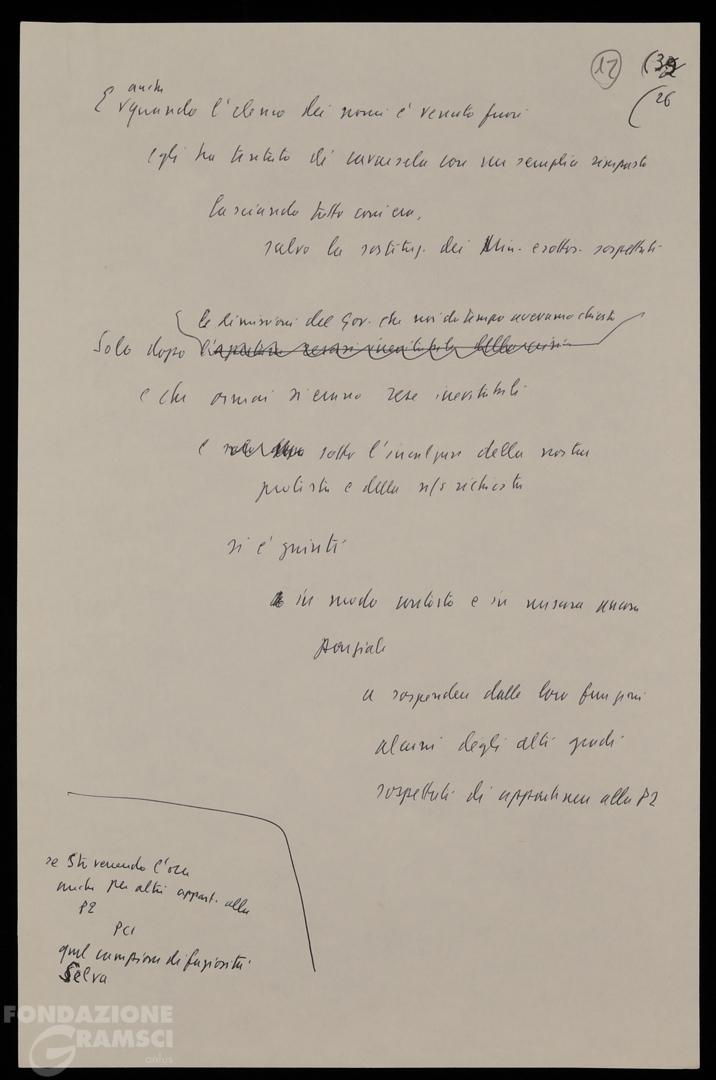 12 (32
(26
anche
E quando l'elenco dei nomi è venuto fuori
egli ha tentato di cavarsela con un semplice rimpasto
lasciando tutto com'era,
salvo la sostituz. dei Min. e sottos. sospettati
le dimissioni del Gov. che noi da tempo avevamo chiesto
Solo dopo
e che ormai si erano rese inevitabili
e sotto l'incalzare della nostra
protesta e della n/s richiesta
si è giunti
in modo contorto e in misura ancora
parziale
a sospendere dalle loro funzioni
alcuni degli alti gradi
sospettati di appartenere alla P2
se Sta venendo l'ora
anche per altri appart. alla
P2
PCI
quel campione di faziosità
Selva
FONDAZIONE
GRAMSCI
onlus